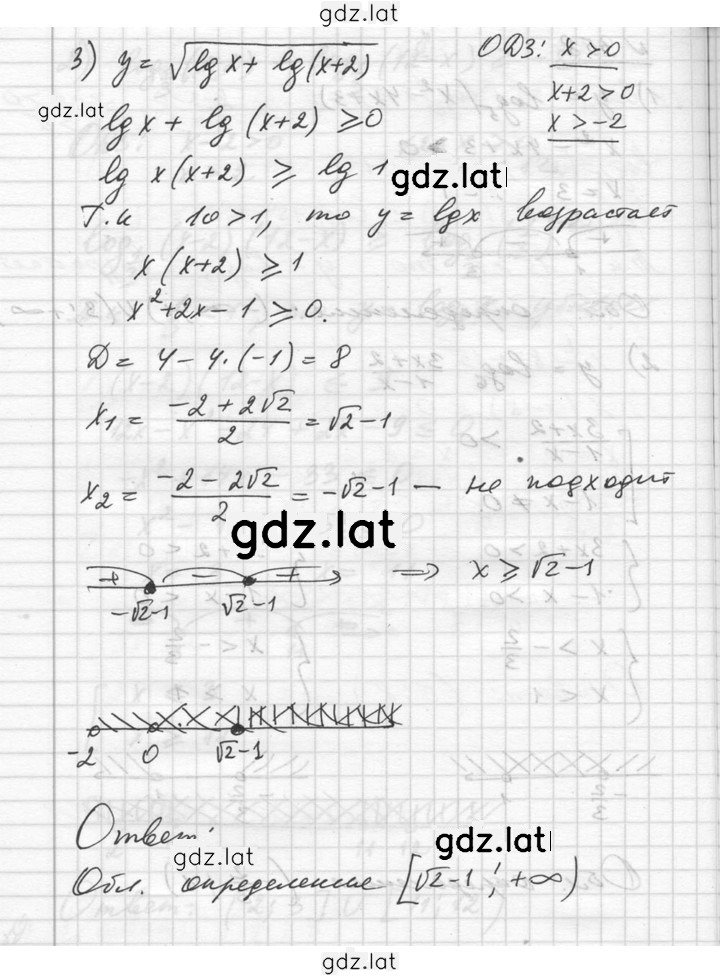 gdz.lat
3) y = √(lg x + lg (x+2)) ОДЗ: x > 0
gdz.lat x+2 > 0
lg x + lg (x+2) ⩾ 0 x > -2
lg x(x+2) ⩾ lg 1 gdz.lat
Т.к 10 > 1, то y = lgx возрастает
x(x+2) ⩾ 1
x² + 2x - 1 ⩾ 0.
D = 4 - 4·(-1) = 8
x₁ = (-2 + 2√2)/2 = √2 - 1
x₂ = (-2 - 2√2)/2 = -√2 - 1 — не подходит
gdz.lat
+ - + ⇒ x ⩾ √2 - 1
-√2-1 √2-1
-2 0 √2-1
Ответ:
gdz.lat gdz.lat
Обл. определение [√2-1; +∞)
gdz.lat